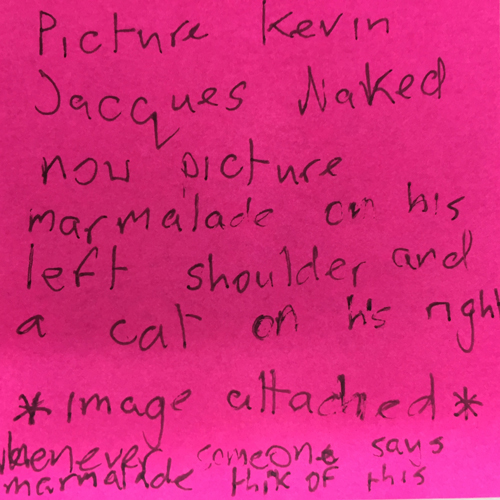 Picture Kevin
Jacques Naked
now picture
marmalade on his
left shoulder and
a cat on his right
*Image attached*
whenever someone says
marmalade thik of this